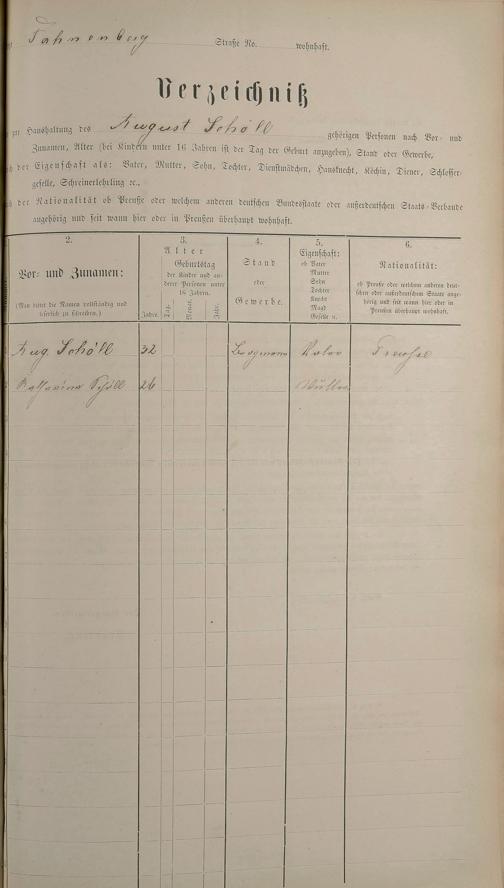 Fahnenberg Straße No. wohnhaft.
Verzeichniß
zur Haushaltung des August Schöll gehörigen Personen nach Vor- und
Zunamen, Alter (bei Kindern unter 16 Jahren ist der Tag der Geburt anzugeben), Stand oder Gewerbe,
der Eigenschaft als: Vater, Mutter, Sohn, Tochter, Dienstmädchen, Hausknecht, Köchin, Diener, Schlosser-
geselle, Schreinerlehrling ec.,
der Nationalität ob Preuße oder welchem anderen deutschen Bundesstaate oder außerdeutschen Staats-Verbande
angehörig und seit wann hier oder in Preußen überhaupt wohnhaft.
2.
Vor- und Zunamen:
(Man bittet die Namen vollständig und
leserlich zu schreiben.)
3.
Alter
Geburtstag
der Kinder und an-
derer Personen unter
16 Jahren.
Jahre. Tag. Monat. Jahr.
4.
Stand
oder
Gewerbe.
5.
Eigenschaft:
ob Vater
Mutter
Sohn
Tochter
Knecht
Magd
Geselle u.
6.
Nationalität:
ob Preuße oder welchem anderen deut-
schen oder außerdeutschen Staate ange-
hörig und seit wann hier oder in
Preußen überhaupt wohnhaft.
Aug. Schöll 32 Bergmann Vater Preuße
Katharina Schöll 26 Mutter